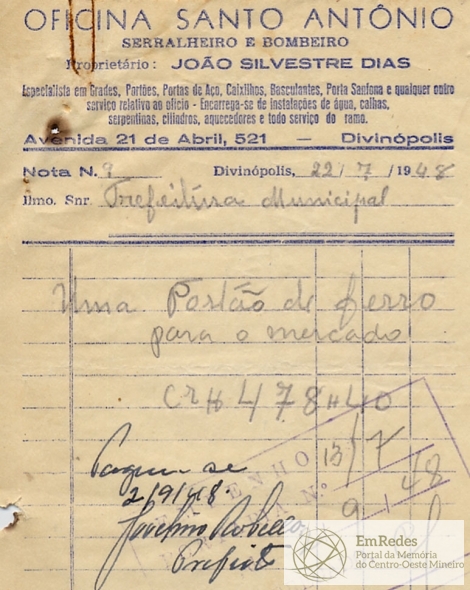 OFICINA SANTO ANTÔNIO
SERRALHEIRO E BOMBEIRO
Proprietário: JOÃO SILVESTRE DIAS
Especialista em Grades, Portões, Portas de Aço, Caixilhos, Basculantes, Porta Sanfona e qualquer outro
serviço relativo ao oficio - Encarrega-se de instalações de água, calhas,
serpentinas, cilindros, aquecedores e todo serviço do ramo.
Avenida 21 de Abril, 521 — Divinópolis
Nota N. 9 Divinópolis, 22/7/1948
Ilmo. Snr Prefeitura Municipal
Uma Portão de ferro
para o mercado
CR$ 478,40
13/7
Pague-se
2/9/48.
Prefeito
EMPENHO
N.º 9 48
EmRedes
Portal da Memória
do Centro-Oeste Mineiro